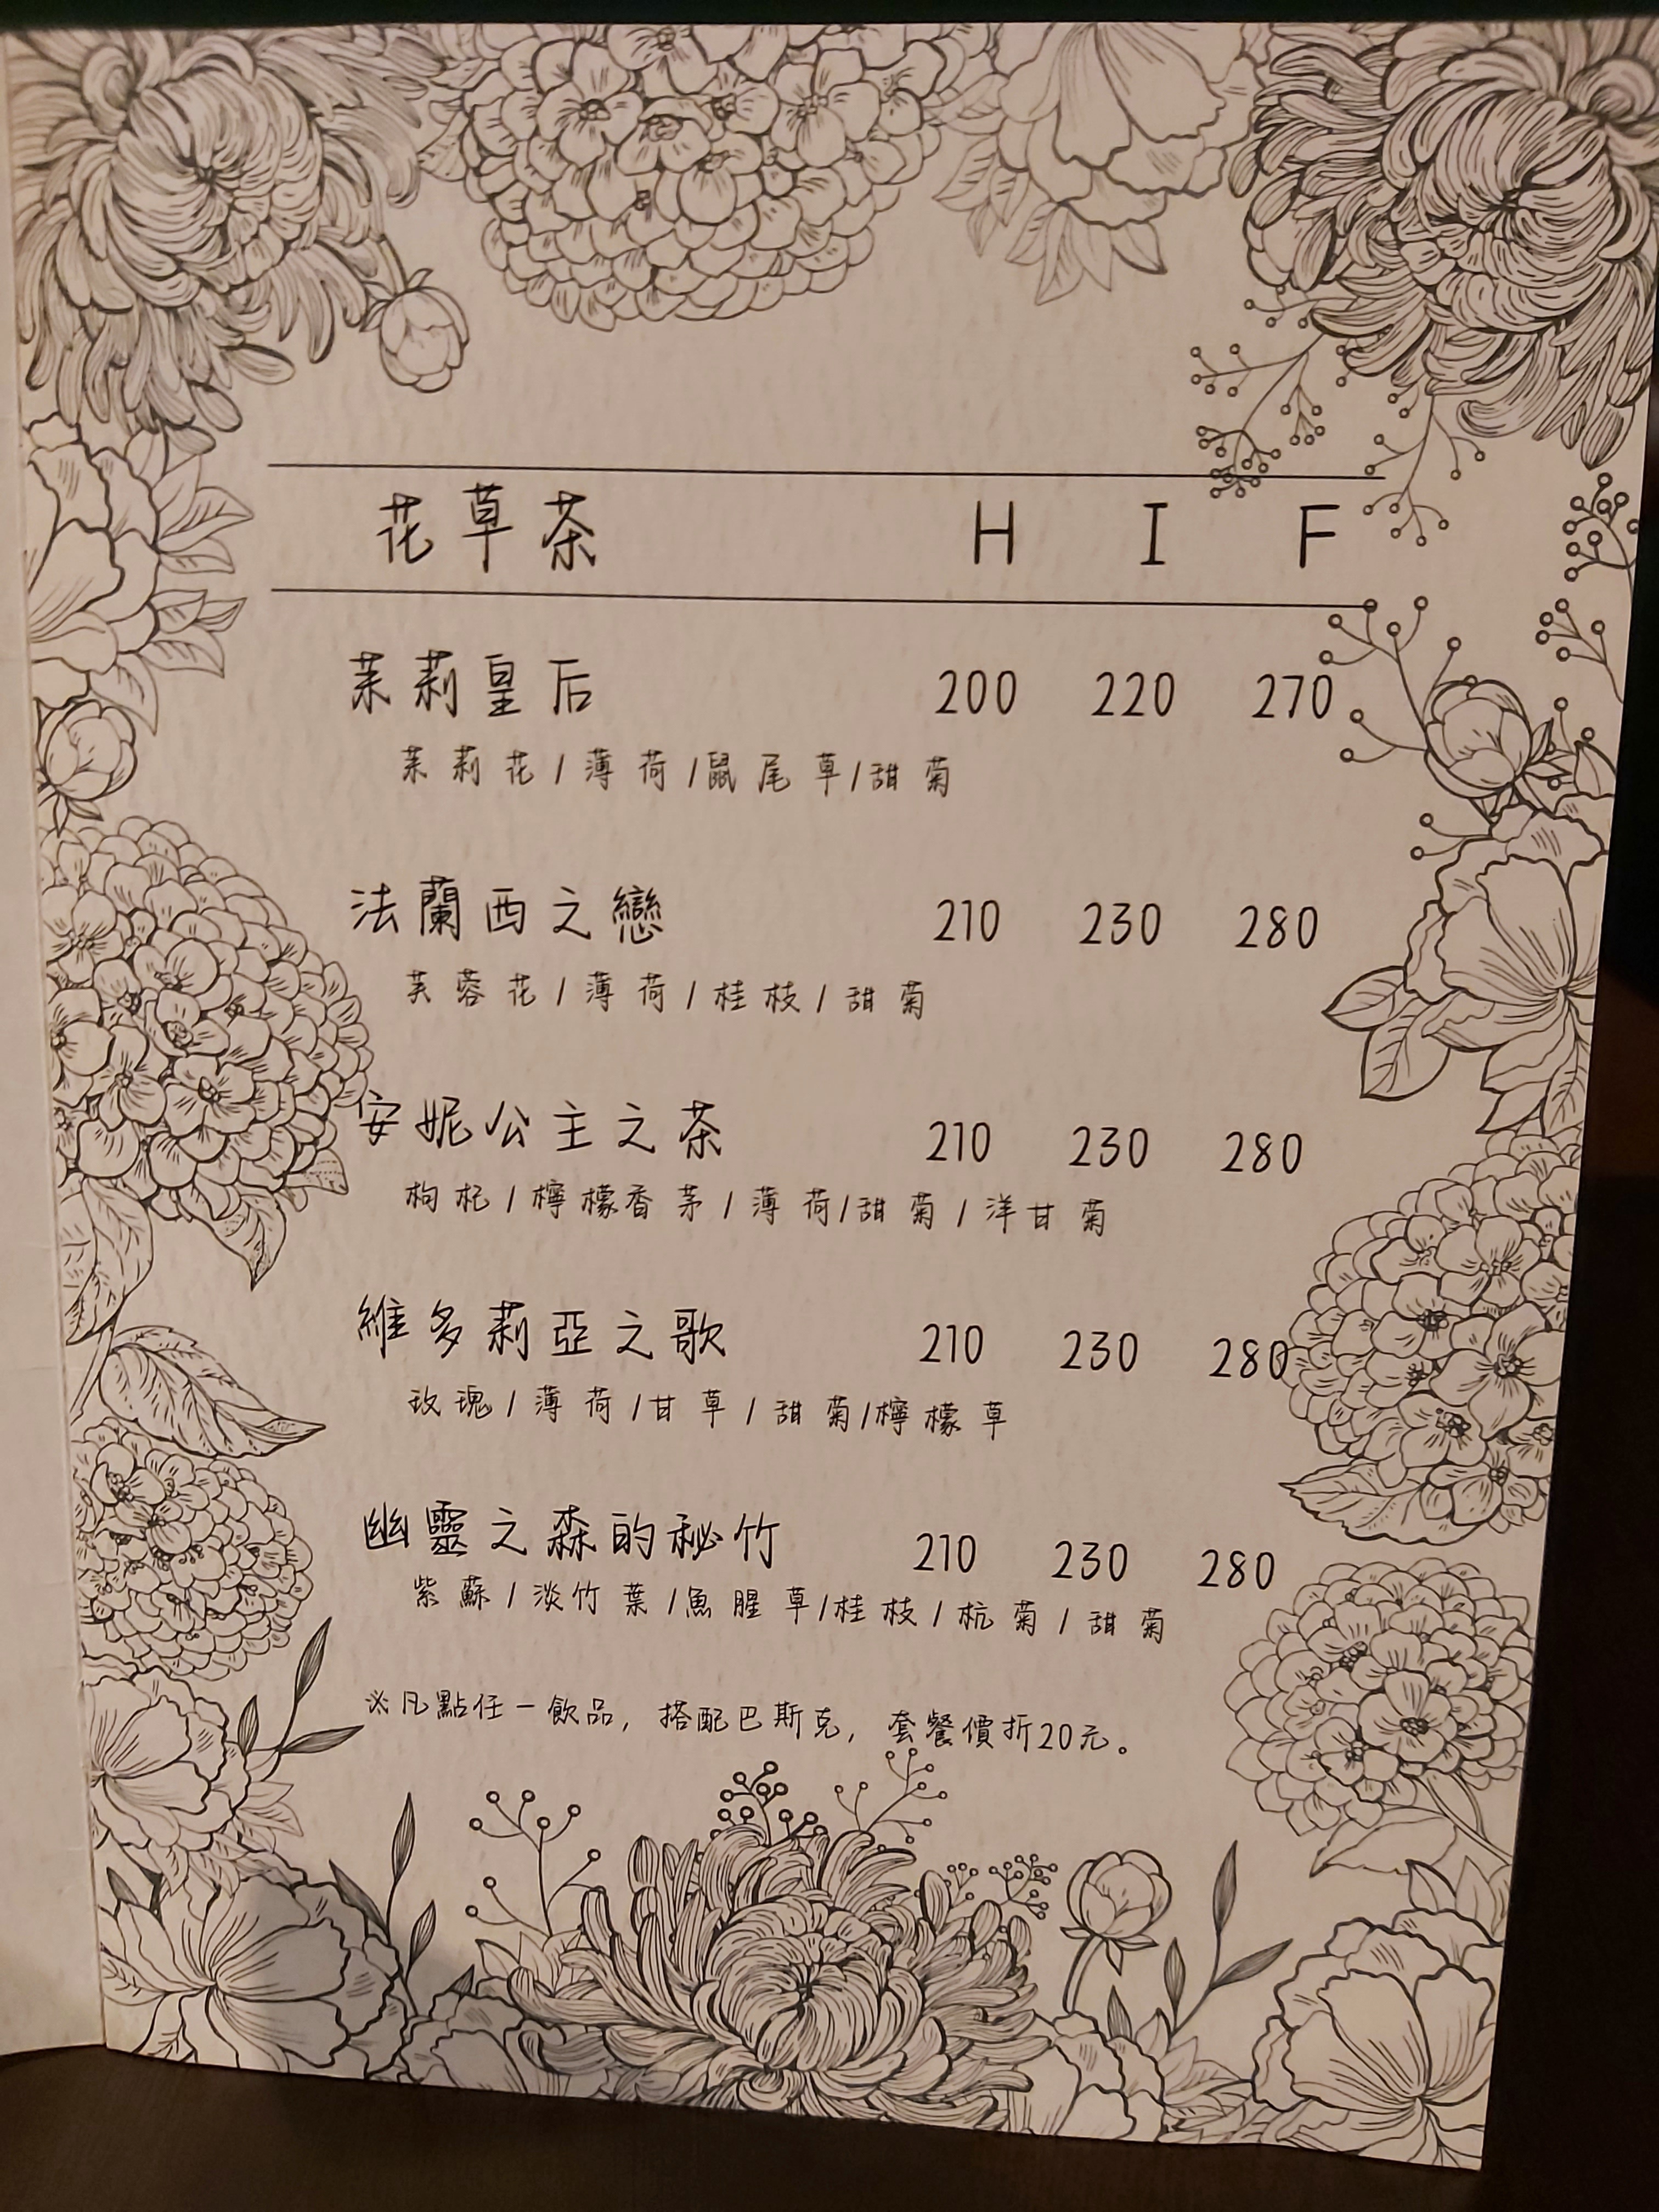 花草茶 H I F
茉莉皇后 200 220 270
茉莉花/薄荷/鼠尾草/甜菊
法蘭西之戀 210 230 280
芙蓉花/薄荷/桂枝/甜菊
安妮公主之茶 210 230 280
枸杞/檸檬香茅/薄荷/甜菊/洋甘菊
維多莉亞之歌 210 230 280
玫瑰/薄荷/甘草/甜菊/檸檬草
幽靈之森的秘竹 210 230 280
紫蘇/淡竹葉/魚腥草/桂枝/杭菊/甜菊
※凡點任一飲品，搭配巴斯克，套餐價折20元。